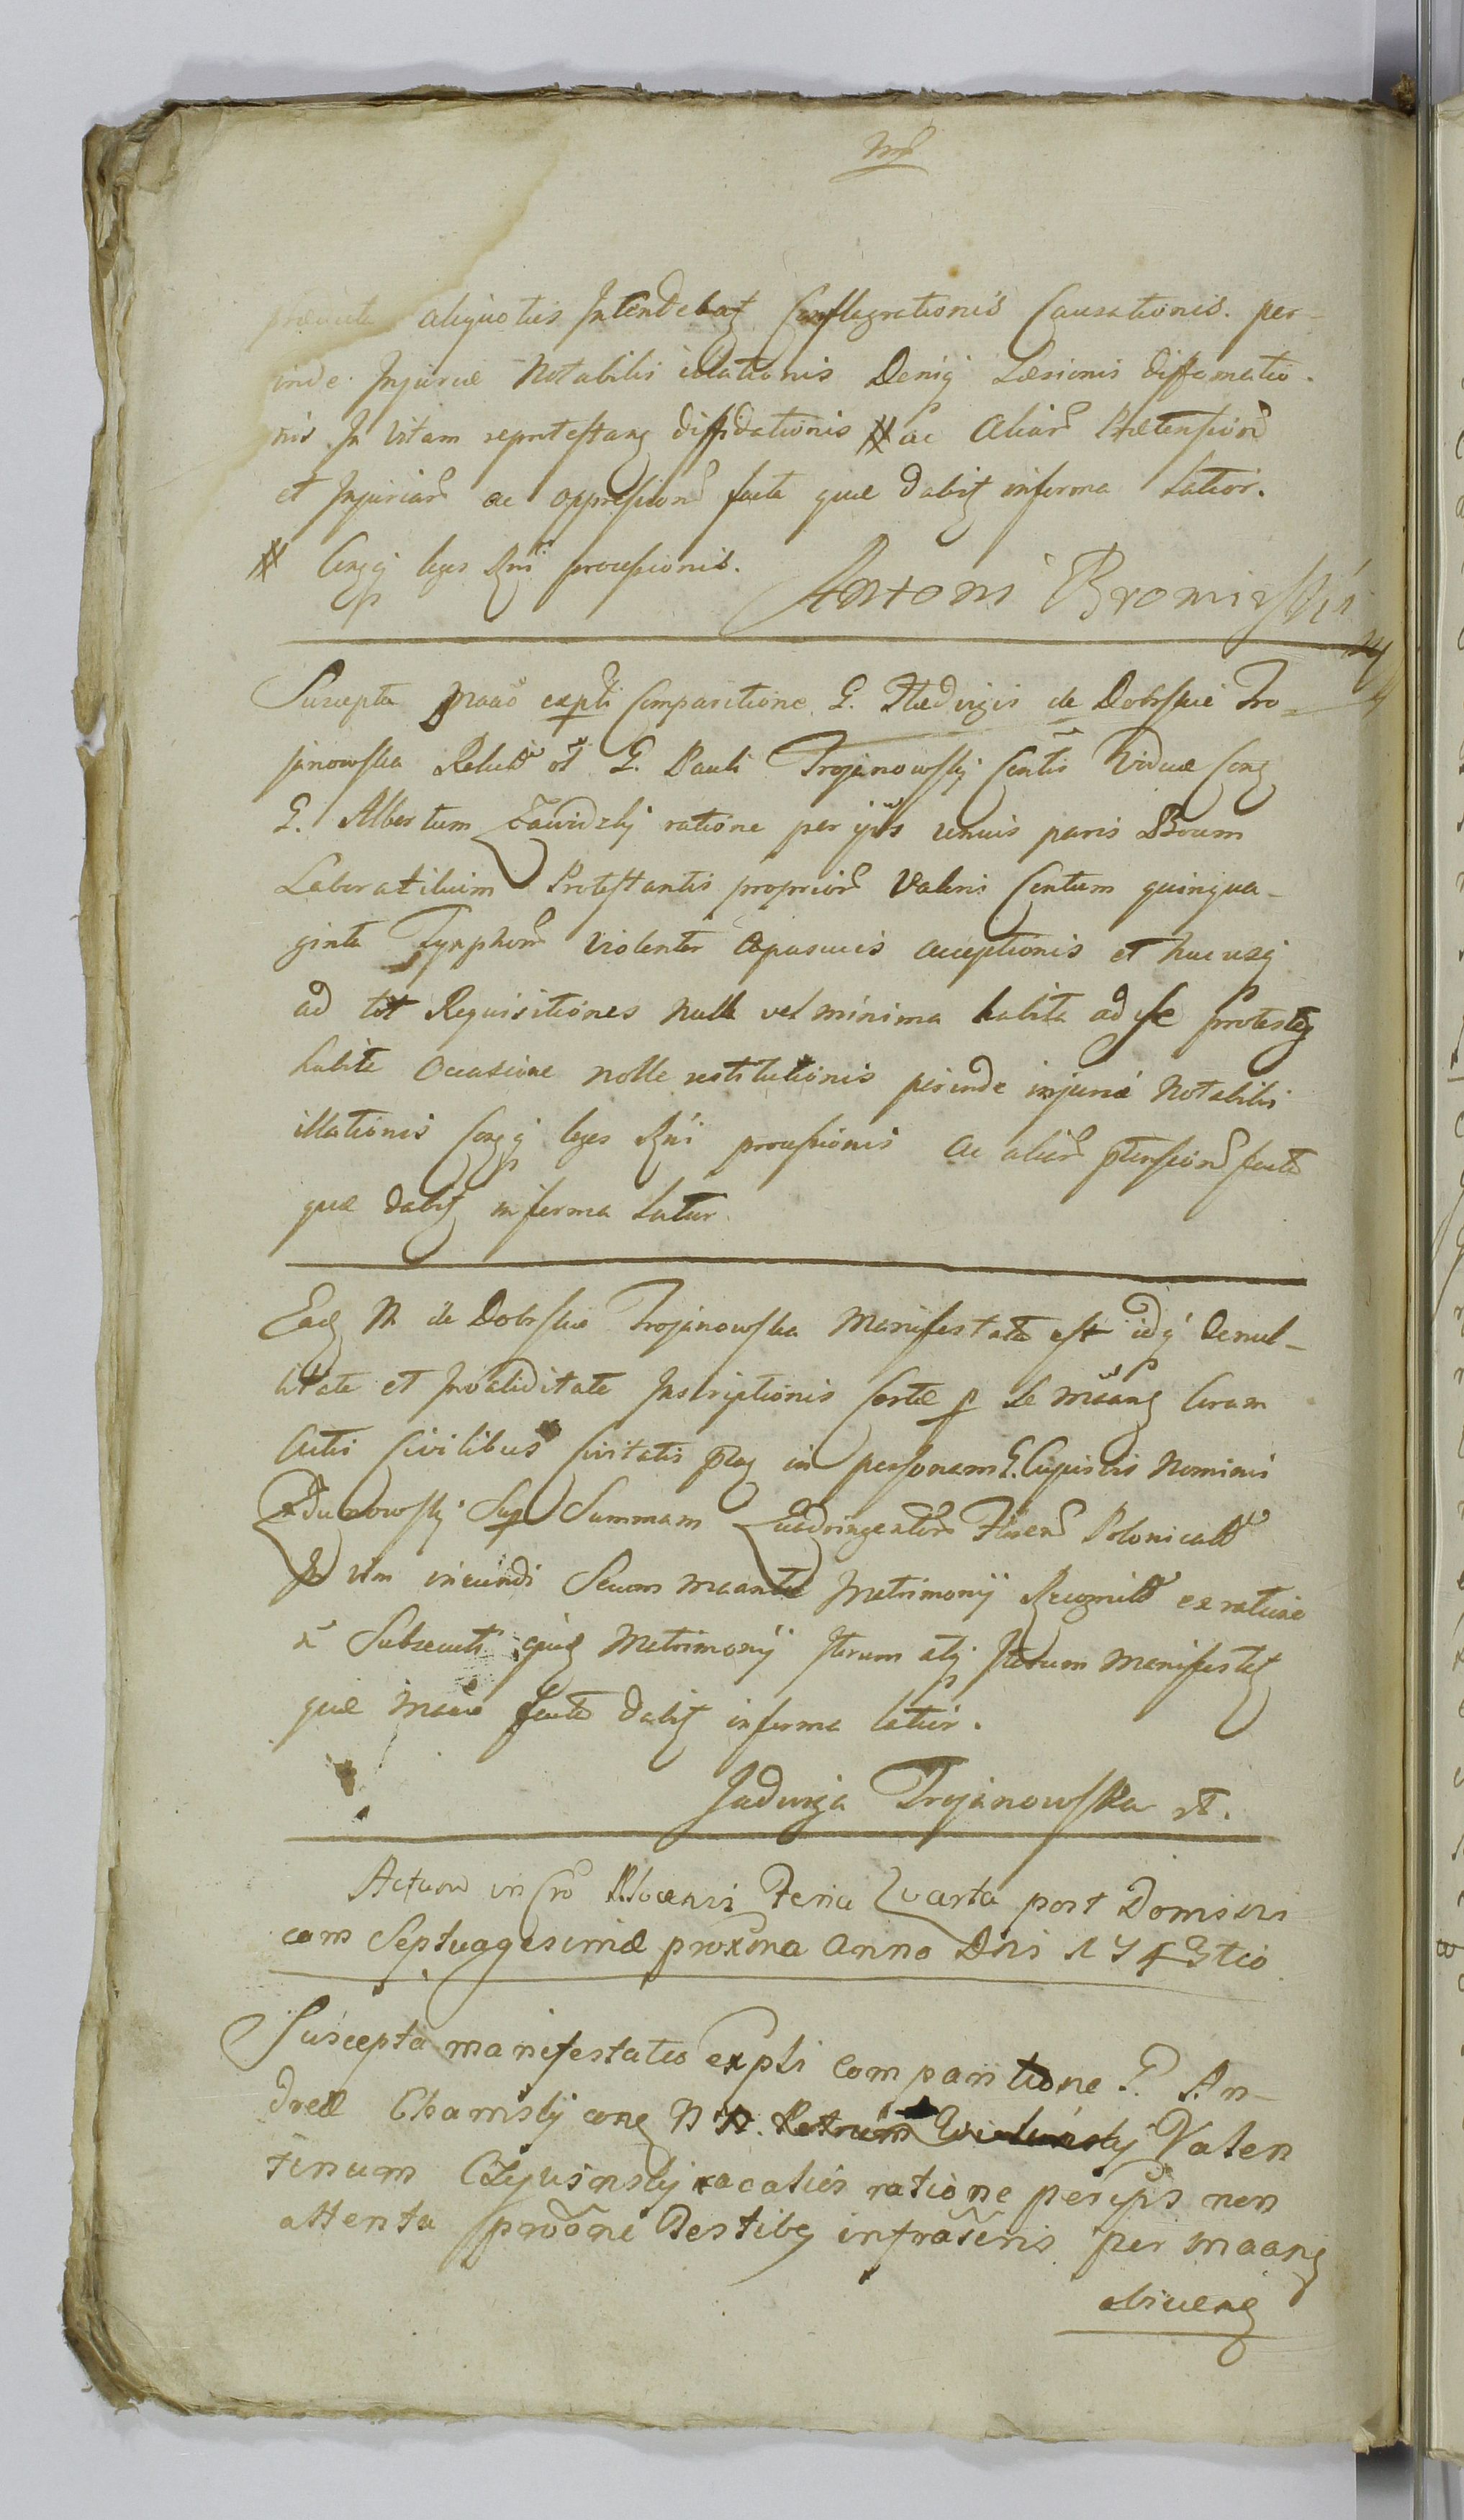 aliquoties Intendebat Conflagrationis Causationis. per-
inde Injuriæ Notabilis illationis Deniq Læsionis diffamatio-
nis In Vitam reprotestang diffidationis # ac Aliar Prætension
et Injuriar ac oppression facta quæ dabit in forma latior.
# Congq leges Rni processionis.
Antoni Bromirski
Suscepta Maao expti Comparitione G. Hædvigis de Dobrskie Tro-
janowska Relictæ ol G. Pauli Trojanowskj Viduæ Cong
G. Albertum Zawidzkj ratione per ipus unius paris Boum
Laboratilium Protestantis proprior Valoris Centum quinqua-
ginta Tynphor violenter Apascuis acceptionis et huc usq
ad tot Requisitiones nulla vel minima habita ad se Protestg
habita Occasione nolle restitutionis perinde injuriæ Notabilis
illationis Congq leges Rni processionis ac aliar ptension facta
quæ dabit in forma latior.
Eadg N de Dobrskie Trojanowska Manifestata est idq de nul-
litate et Invaliditate Inscriptionis Certæ p se Maang Coram
Actis Civilibus Civitatis in personam G. Cupiscis Nominis
Sup Summam Quadringentor Floren Polonicall
In vim ineundi Secum Maante Matrimonij Recognitæ ex ratione
n Subsecuti Matrimonij Iterum atq Iterum Manifestat
quæ Maao facta dabit in forma latior.
Jadwiga Trojanowska
Actum in Cro Plocensi Feria Quarta post Domini
cam Septuagesimæ proxima Anno Dni 1743tio
Suscepta manifestatio expti Comparitione G. An-
dreæ Chamskj cong N N. Petrum Valen
tinum ac alios ratione per ipus non
attenta Testibg infrascris per maang